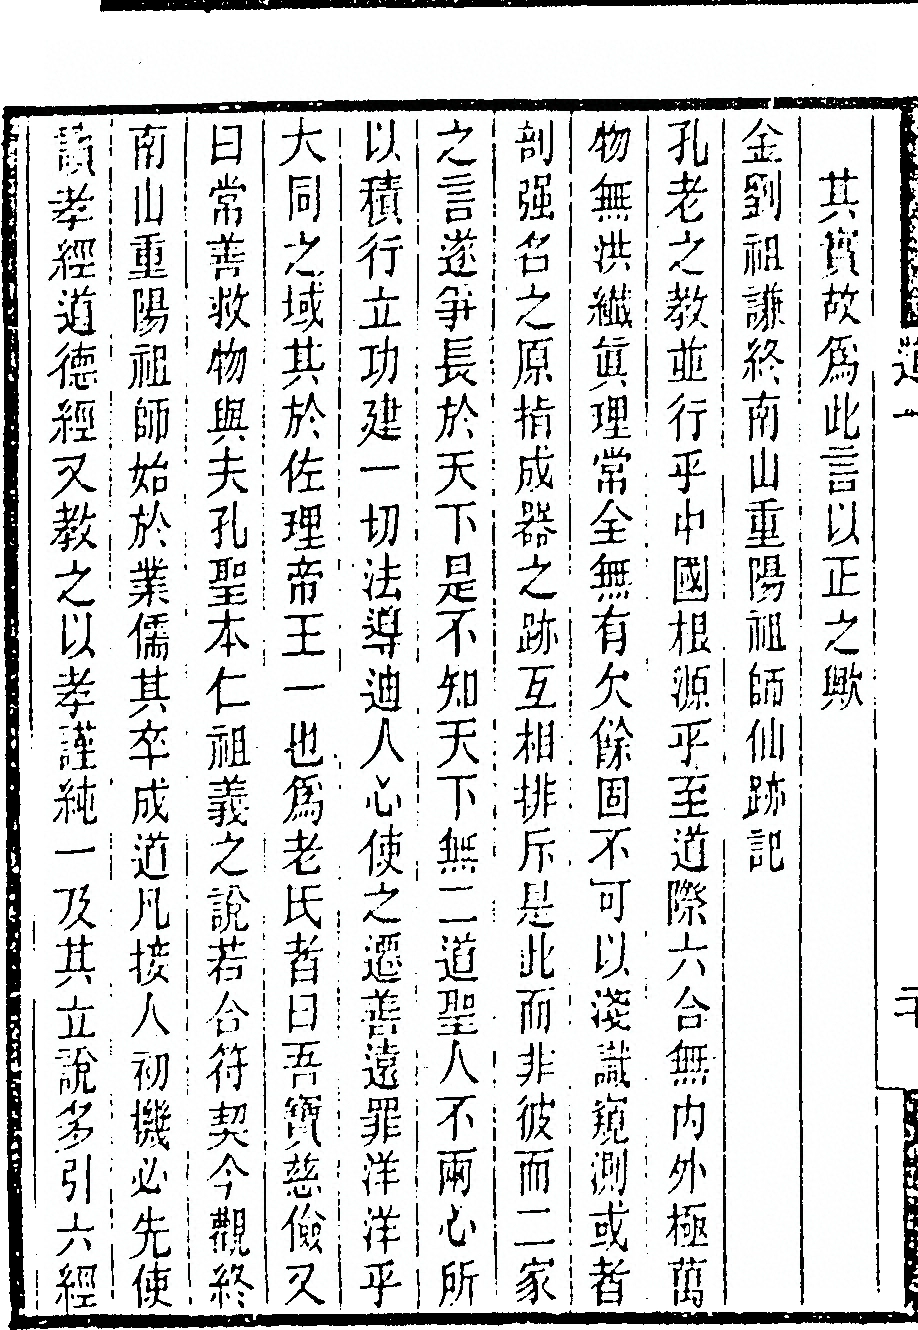 其實故爲此言以正之歟
金劉祖謙終南山重陽祖師仙跡記
孔老之教並行乎中國根源乎至道際六合無内外極萬
物無洪纖眞理常全無有欠餘固不可以淺識窺測或者
剖强名之原指成器之跡互相排斥是此而非彼而二家
之言遂爭長於天下是不知天下無二道聖人不兩心所
以積行立功建一切法導迪人心使之遷善遠罪洋洋乎
大同之域其於佐理帝王一也爲老氏者曰吾寶慈儉又
曰常善救物與夫孔聖本仁祖義之說若合符契今觀終
南山重陽祖師始於業儒其卒成道凡接人初機必先使
讀孝經道德經又教之以孝謹純一及其立說多引六經